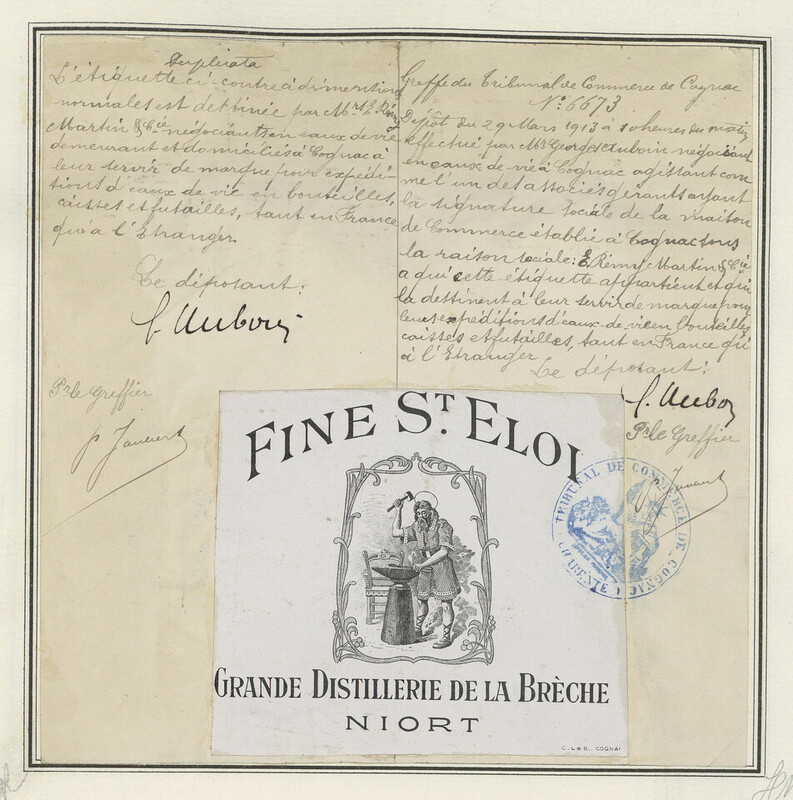 Duplicata
L'étiquette ci-contre à dimensions
normales est destinée par Mrs E. Rémy
Martin & Cie négociants en eaux de vie
demeurant et domiciliés à Cognac à
leur servir de marque pour expédi-
tions d'eaux de vie en bouteilles,
caisses et futailles, tant en France
qu'à l'Etranger.
Le déposant:
G. Auboin
Pr le Greffier
Greffe du Tribunal de Commerce de Cognac
No 6673
Dépôt du 29 Mars 1913 à 10 heures du matin
effectué par Mr Georges Auboin négociant
en eaux-de-vie à Cognac agissant com
me l'un des associés gérants ayant
la signature sociale de la maison
de Commerce établie à Cognac sous
la raison sociale: E. Rémy Martin & Cie
a qui cette étiquette appartient et qui
la destinent à leur servir de marque pour
leurs expéditions d'eaux-de-vie en bouteilles
caisses et futailles, tant en France qu'
à l'Etranger.
Le déposant:
G. Auboin
Pr le Greffier
FINE ST. ELOI
TRIBUNAL DE COMMERCE DE COGNAC
CHARENTE
GRANDE DISTILLERIE DE LA BRÈCHE
NIORT
C. L & R., COGNAC